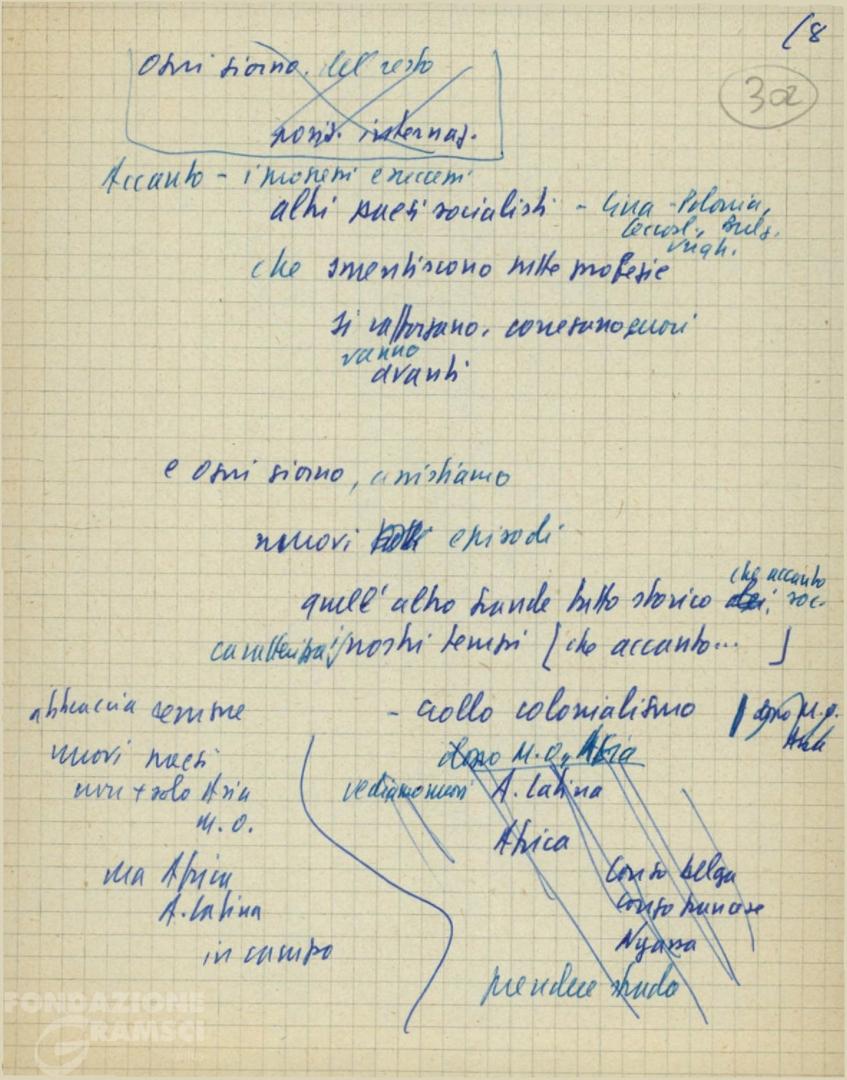 18
302
Ogni giorno. del resto
posiz. internaz.
Accanto - i successi
altri paesi socialisti - Cina - Polonia,
Cecosl., Bulg.
Ungh.
che smentiscono tutte profezie
si rafforzano,
vanno
avanti
e ogni giorno, assistiamo
nuovi episodi
quell'altro grande fatto storico che accanto soc.
caratterizza i nostri tempi [che accanto... ]
- crollo colonialismo
dopo M.O.
Asia
abbraccia sempre
nuovi paesi
non + solo Asia
M.O.
ma Africa
A. Latina
in campo
dopo M.O., Asia
vediamo nuovi A. Latina
Africa
Congo belga
Congo francese
Nyassa
prendere strada
FONDAZIONE
GRAMSCI